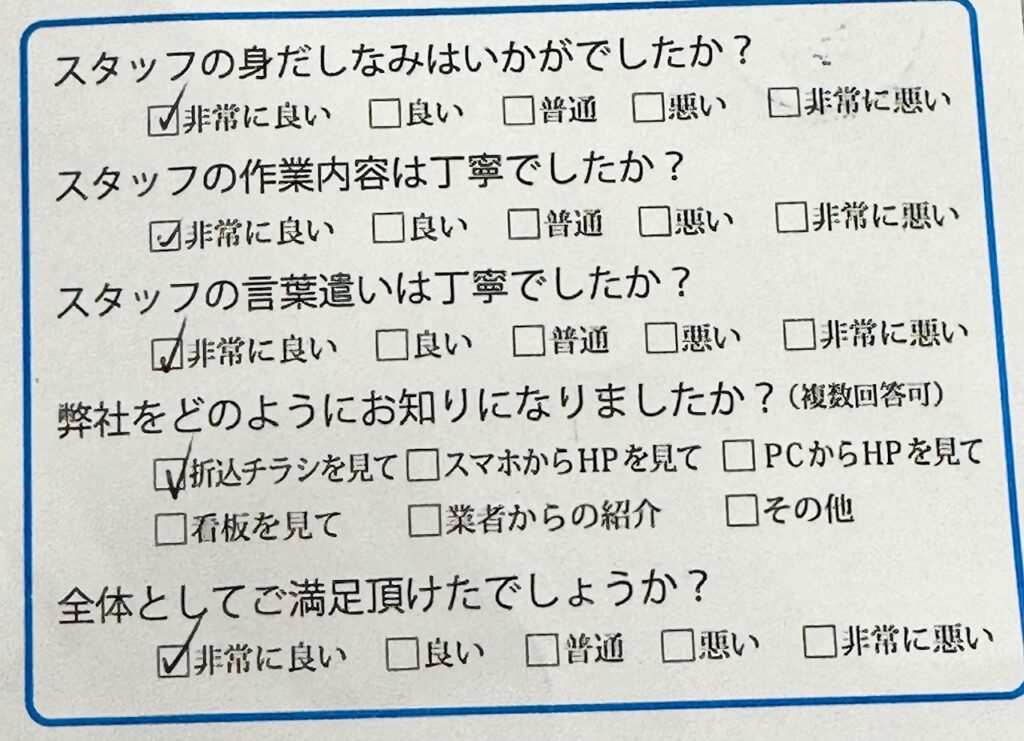 スタッフの身だしなみはいかがでしたか？
☑非常に良い □良い □普通 □悪い □非常に悪い
スタッフの作業内容は丁寧でしたか？
☑非常に良い □良い □普通 □悪い □非常に悪い
スタッフの言葉遣いは丁寧でしたか？
☑非常に良い □良い □普通 □悪い □非常に悪い
弊社をどのようにお知りになりましたか？（複数回答可）
☑折込チラシを見て □スマホからHPを見て □PCからHPを見て
□看板を見て □業者からの紹介 □その他
全体としてご満足頂けたでしょうか？
☑非常に良い □良い □普通 □悪い □非常に悪い